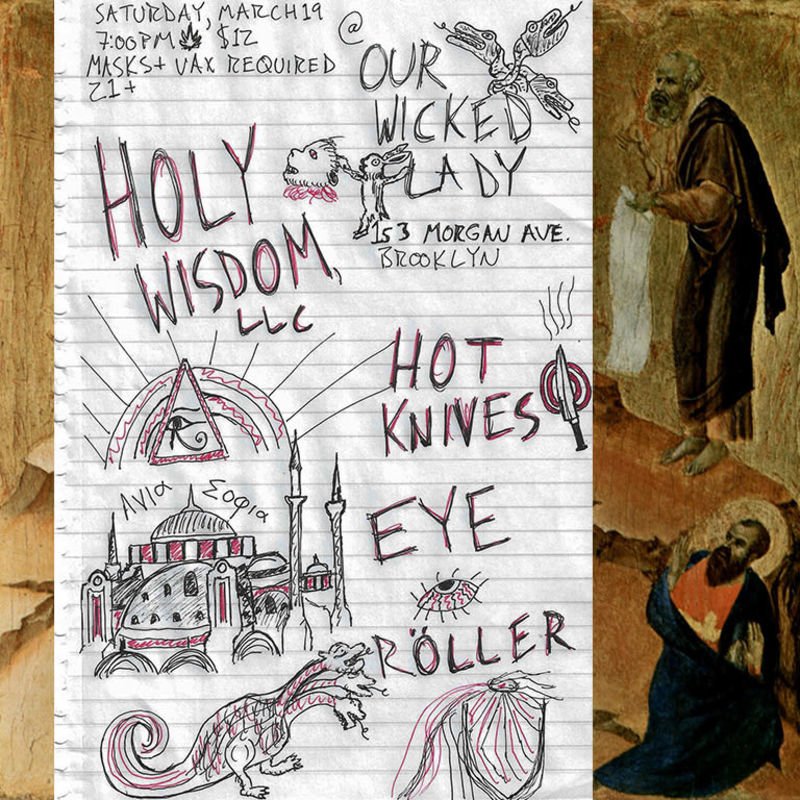 SATURDAY, MARCH 19
7:00PM $12
MASKS+ VAX REQUIRED
21+
@
OUR
WICKED
LADY
153 MORGAN AVE.
BROOKLYN
HOLY
WISDOM,
LLC
HOT
KNIVES
Αγια Σοφια
EYE
RÖLLER